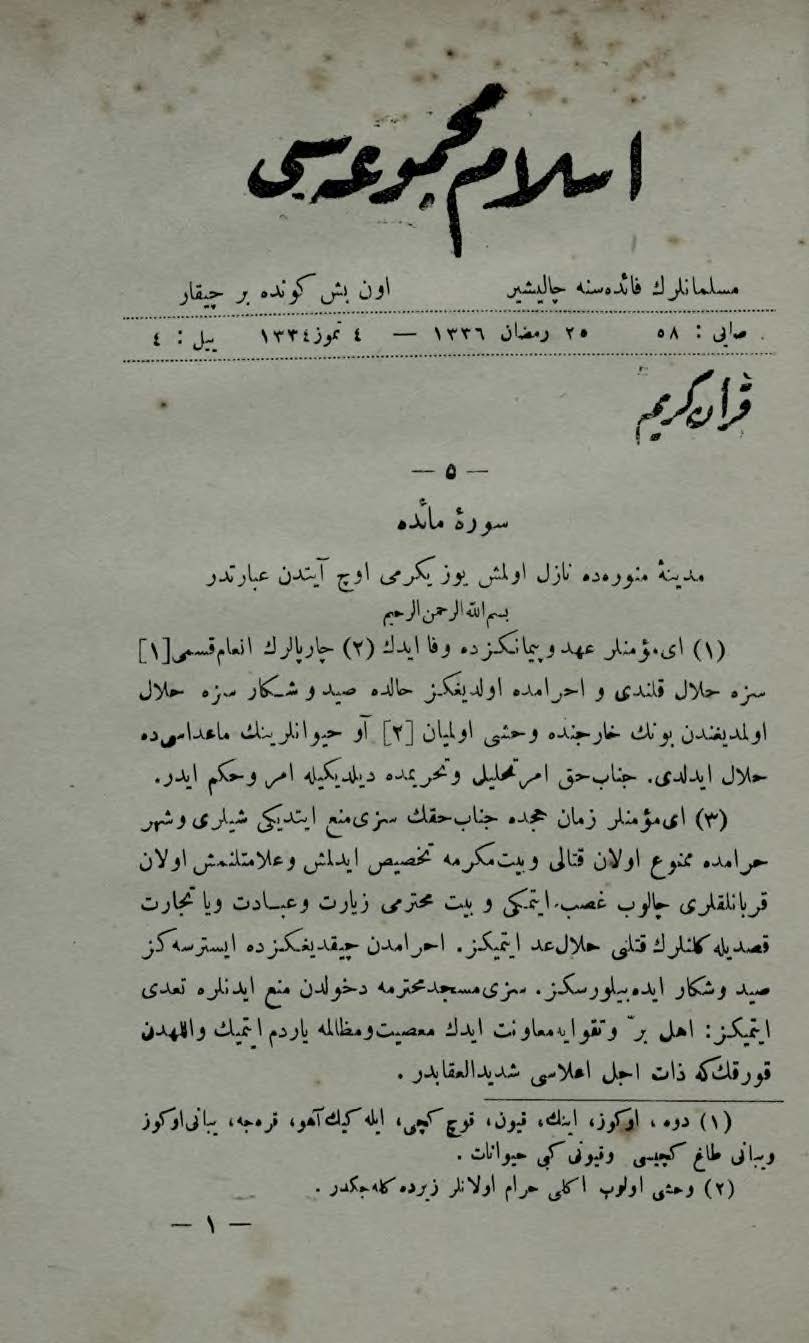 اسلام مجموعه‌سی
مسلمانلرك فائده‌سنه چالیشیر اون بش كونده بر چیقار
صایی : ٥٨ ٢٥ رمضان ١٣٣٦ — ٤ تموز ١٣٣٤ ییل : ٤
قرآن كریم
— ٥ —
سورهٔ مائده
مدینهٔ منوره‌ده نازل اولمش یوز یكرمی اوچ آیتدن عبارتدر
بسم الله الرحمن الرحیم
(١) ای مؤمنلر عهد و پیمانكزده وفا ایدك (٢) چارپالرك انعام قسمی [١]
سزه حلال قلندی و احرامده اولدیغكز حالده صید و شكار سزه حلال
اولمدیغندن بونك خارجنده وحشی اولمیان [٢] آو حیوانلرینك ماعداسی ده
حلال ایدلدی. جناب حق امر تحلیلی وتحریمده دیلدیكیله امر وحكم ایدر.
(٣) ای مؤمنلر زمان حجده جناب حقك سزی منع ایتدیكی شیلری وشهر
حرامده ممنوع اولان قتالی وبیت مكرمه تخصیص ایدلمش وعلامتلنمش اولان
قربانلقلری چالوب غصب ایتمكی و بیت محترمی زیارت وعبادت ویا تجارت
قصدیله كلنلرك قتلنی حلال عد ایتمیكز. احرامدن چیقدیغكزده ایسترسه‌كز
صید وشكار ایده بیلورسكز. سزی مسجد محترمه دخولدن منع ایدنلره تعدی
ایتمیكز: اهل برّ وتقوایه معاونت ایدك معصیت ومظالمه یاردم ایتمیك واللهدن
قورقك كه ذات اجل اعلاسی شدید العقابدر .
(١) دوه ، اوكوز، اینك، قیون، قوچ كچی، ایله كیك آهو، قره‌جه، یبانی اوكوز
ویبانی طاغ كچیسی وقیونی كبی حیوانات .
(٢) وحشی اولوب اكلی حرام اولانلر زیرده كله‌جكدر .
— ١ —